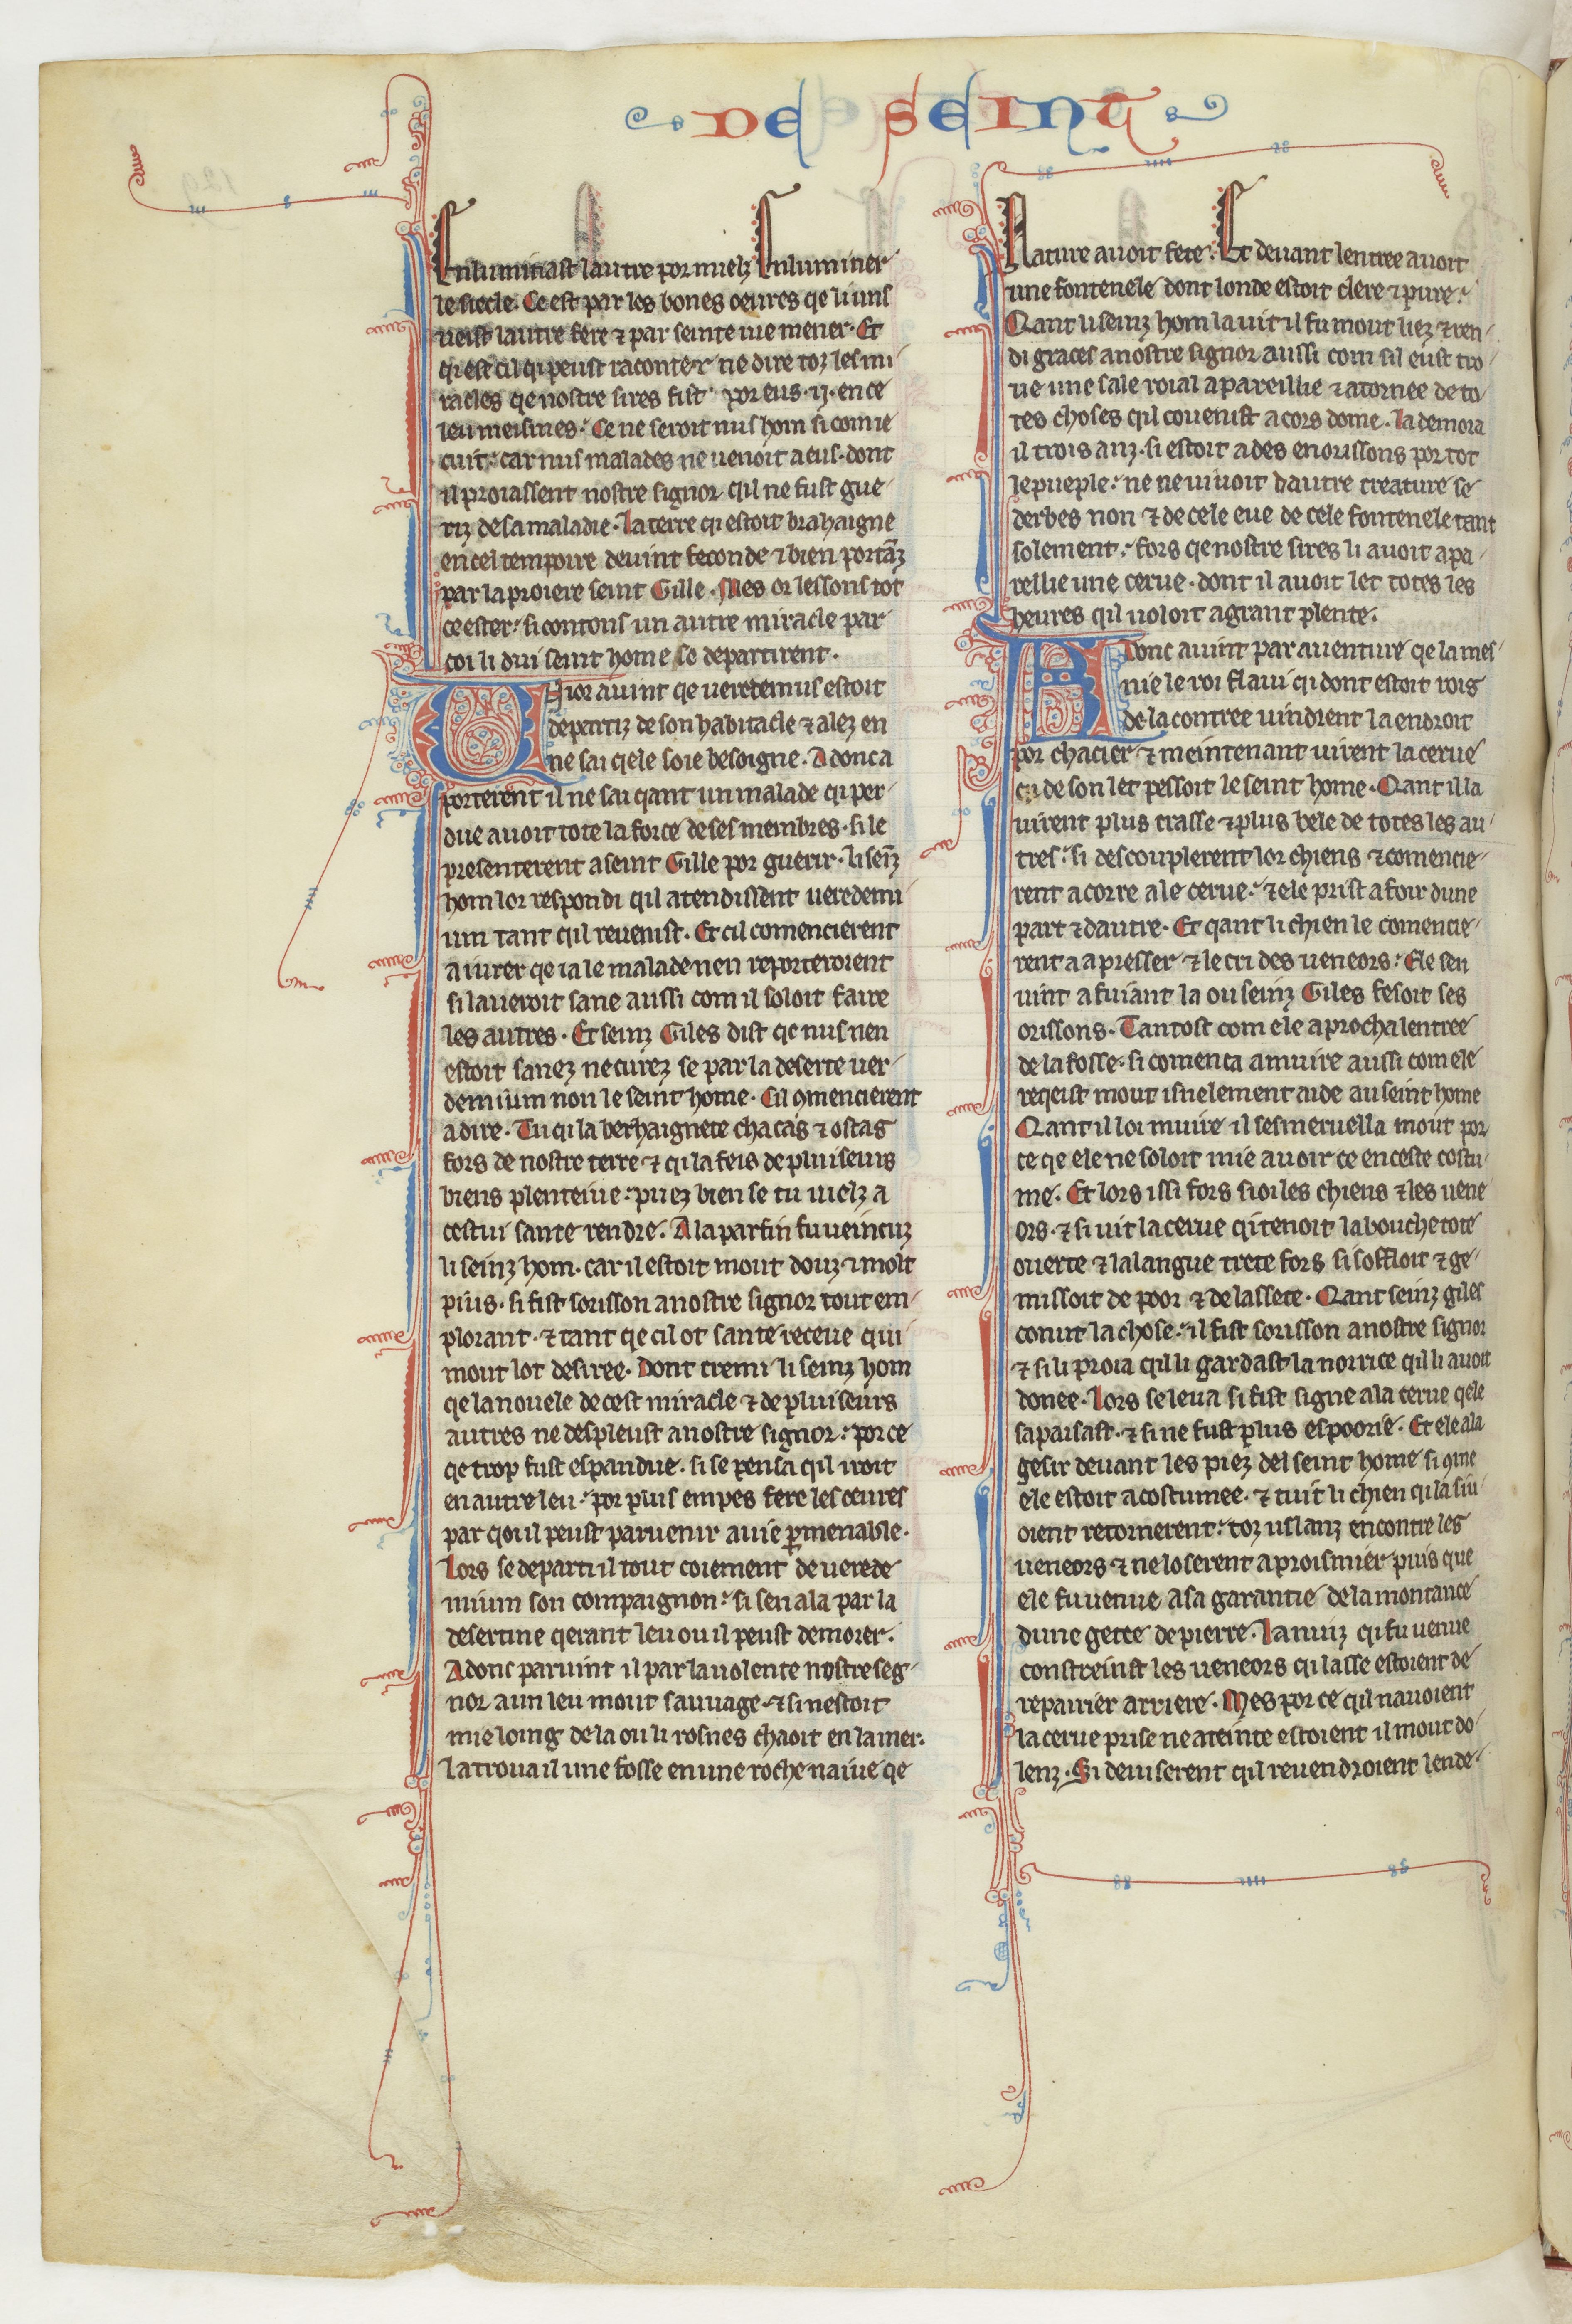 DE SEINT
Enluminast lautre por mielz Enluminer
le siecle. Ce est par les bones oeures qe li uns
ueist lautre fere ⁊ par seinte uie mener. Et
qi est cil qi peust raconter ne dire toz les mi-
racles qe nostre sires fist por eus .ij. en ce
leu meismes. Ce ne seroit nus hom si com ie
cuit. car nus malades ne uenoit a eus. dont
il proiassent nostre signor qil ne fust gue-
riz de sa maladie. La terre qi estoit brahaigne
en cel tempoire deuint feconde ⁊ bien portãz
par la proiere seint Gille. Mes or lessons tot
ce ester. si contons un autre miracle par
coi li dui seint home se departirent.
Uior auint qe ueredemus estoit
departiz de son habitacle ⁊ alez en
ne sai qele soie besoigne. Adonc a
porterent il ne sai qant un malade qi per-
due auoit tote la force de ses membres. si le
presenterent a seint Gille por guerir. li seĩz
hom lor respondi qil atendissent ueredemi
um tant qil reuenist. Et cil comencierent
a iurer qe ia le malade nen reporteroient
si laueroit sane aussi com il soloit faire
les autres. Et seinz Giles dist qe nus nen
estoit sanez ne curez se par la deserte uer-
demium non le seint home. Cil ꝯmencierent
a dire. Tu qi la berhaignete chacas ⁊ ostas
fors de nostre terre ⁊ qi la feis de pluiseurs
biens plenteiue. puez bien se tu uielz a
cestui sante rendre. A la parfin fu ueincuz
li seinz hom. car il estoit mout douz ⁊ molt
pius. si fist sorisson a nostre signor tout em-
plorant. ⁊ tant qe cil ot sante receue qui
mout lot desiree. Dont cremi li seinz hom
qe la nouele de cest miracle ⁊ de pluiseurs
autres ne despleust a nostre signor. por ce
qe trop fust espandue. si se pensa qil iroit
en autre leu. por puis empes fere les oeures
par qoi il peust paruenir a uie ꝑmenable.
Lors se departi il tout coiement de uerede
mium son compaignon. si sen ala par la
desertine qerant leu ou il peust demorer.
Adonc paruint il par la uolente nostre seg-
nor a un leu mout sauuage. ⁊ si nestoit
mie loing de la ou li rosnes chaoit en la mer.
La troua il une fosse en une roche naiue qe
Nature auoit fete. Et deuant lentree auoit
une fontenele dont londe estoit clere ⁊ pure.
Qant li seinz hom la uit il fu mout liez ⁊ ren-
di graces a nostre signor aussi com sil eust tro-
ue une sale roial apareillie ⁊ atornee de to-
tes choses qil couenist a cors dome. La demora
il trois anz. si estoit ades en orissons por tot
le pueple. ne ne uiuoit dautre creature se
derbes non ⁊ de cele eue de cele fontenele tant
solement. fors qe nostre sires li auoit apa-
rellie une cerue. dont il auoit let totes les
heures qil uoloit a grant plente.
Adonc auint par auenture qe la mes-
nie le roi flaui qi dont estoit rois
de la contree uindrent la endroit
por chacier ⁊ meintenant uirent la cerue
qi de son let pessoit le seint home. Qant il la
uirent plus crasse ⁊ plus bele de totes les au-
tres. si descouplerent lor chiens ⁊ comencie-
rent a corre a le cerue. ⁊ ele prist a foir dune
part ⁊ dautre. Et qant li chien le comencie-
rent a apresser ⁊ le cri des ueneors. Ele sen
uint afuiant la ou seinz Giles fesoit ses
orissons. Tantost com ele aprocha lentree
de la fosse. si comenca a muire aussi com ele
reqeist mout isnelement aide au seint home
Qant il loi muire il sesmeruella mout por
ce qe ele ne soloit mie auoir ce en ceste costu-
me. Et lors issi fors si oi les chiens ⁊ les uene
ors. ⁊ si uit la cerue qi tenoit la bouche tote
ouerte ⁊ la langue trete fors si soffloit ⁊ ge-
missoit de poor ⁊ de lassete. Qant seinz giles
conut la chose. il fist sorisson a nostre signor
⁊ si li proia qil li gardast la norrice qil li auoit
donee. Lors se leua si fist signe a la cerue qele
sapaisast. ⁊ si ne fust plus espoorie. Et ele ala
gesir deuant les piez del seint home si ꝯme
ele estoit acostumee. ⁊ tuit li chien qi la siu-
oient retornerent. toz uslanz encontre les
ueneors ⁊ ne loserent aproismier puis que
ele fu uenue a sa garantie de la montance
dune getee de pierre. La nuiz qi fu uenue
constreinst les ueneors qi lasse estoient de
repairier arriere. Mes por ce qil nauoient
la cerue prise ne ateinte estoient il mout do-
lenz. Si deuiserent qil reuendroient lende-